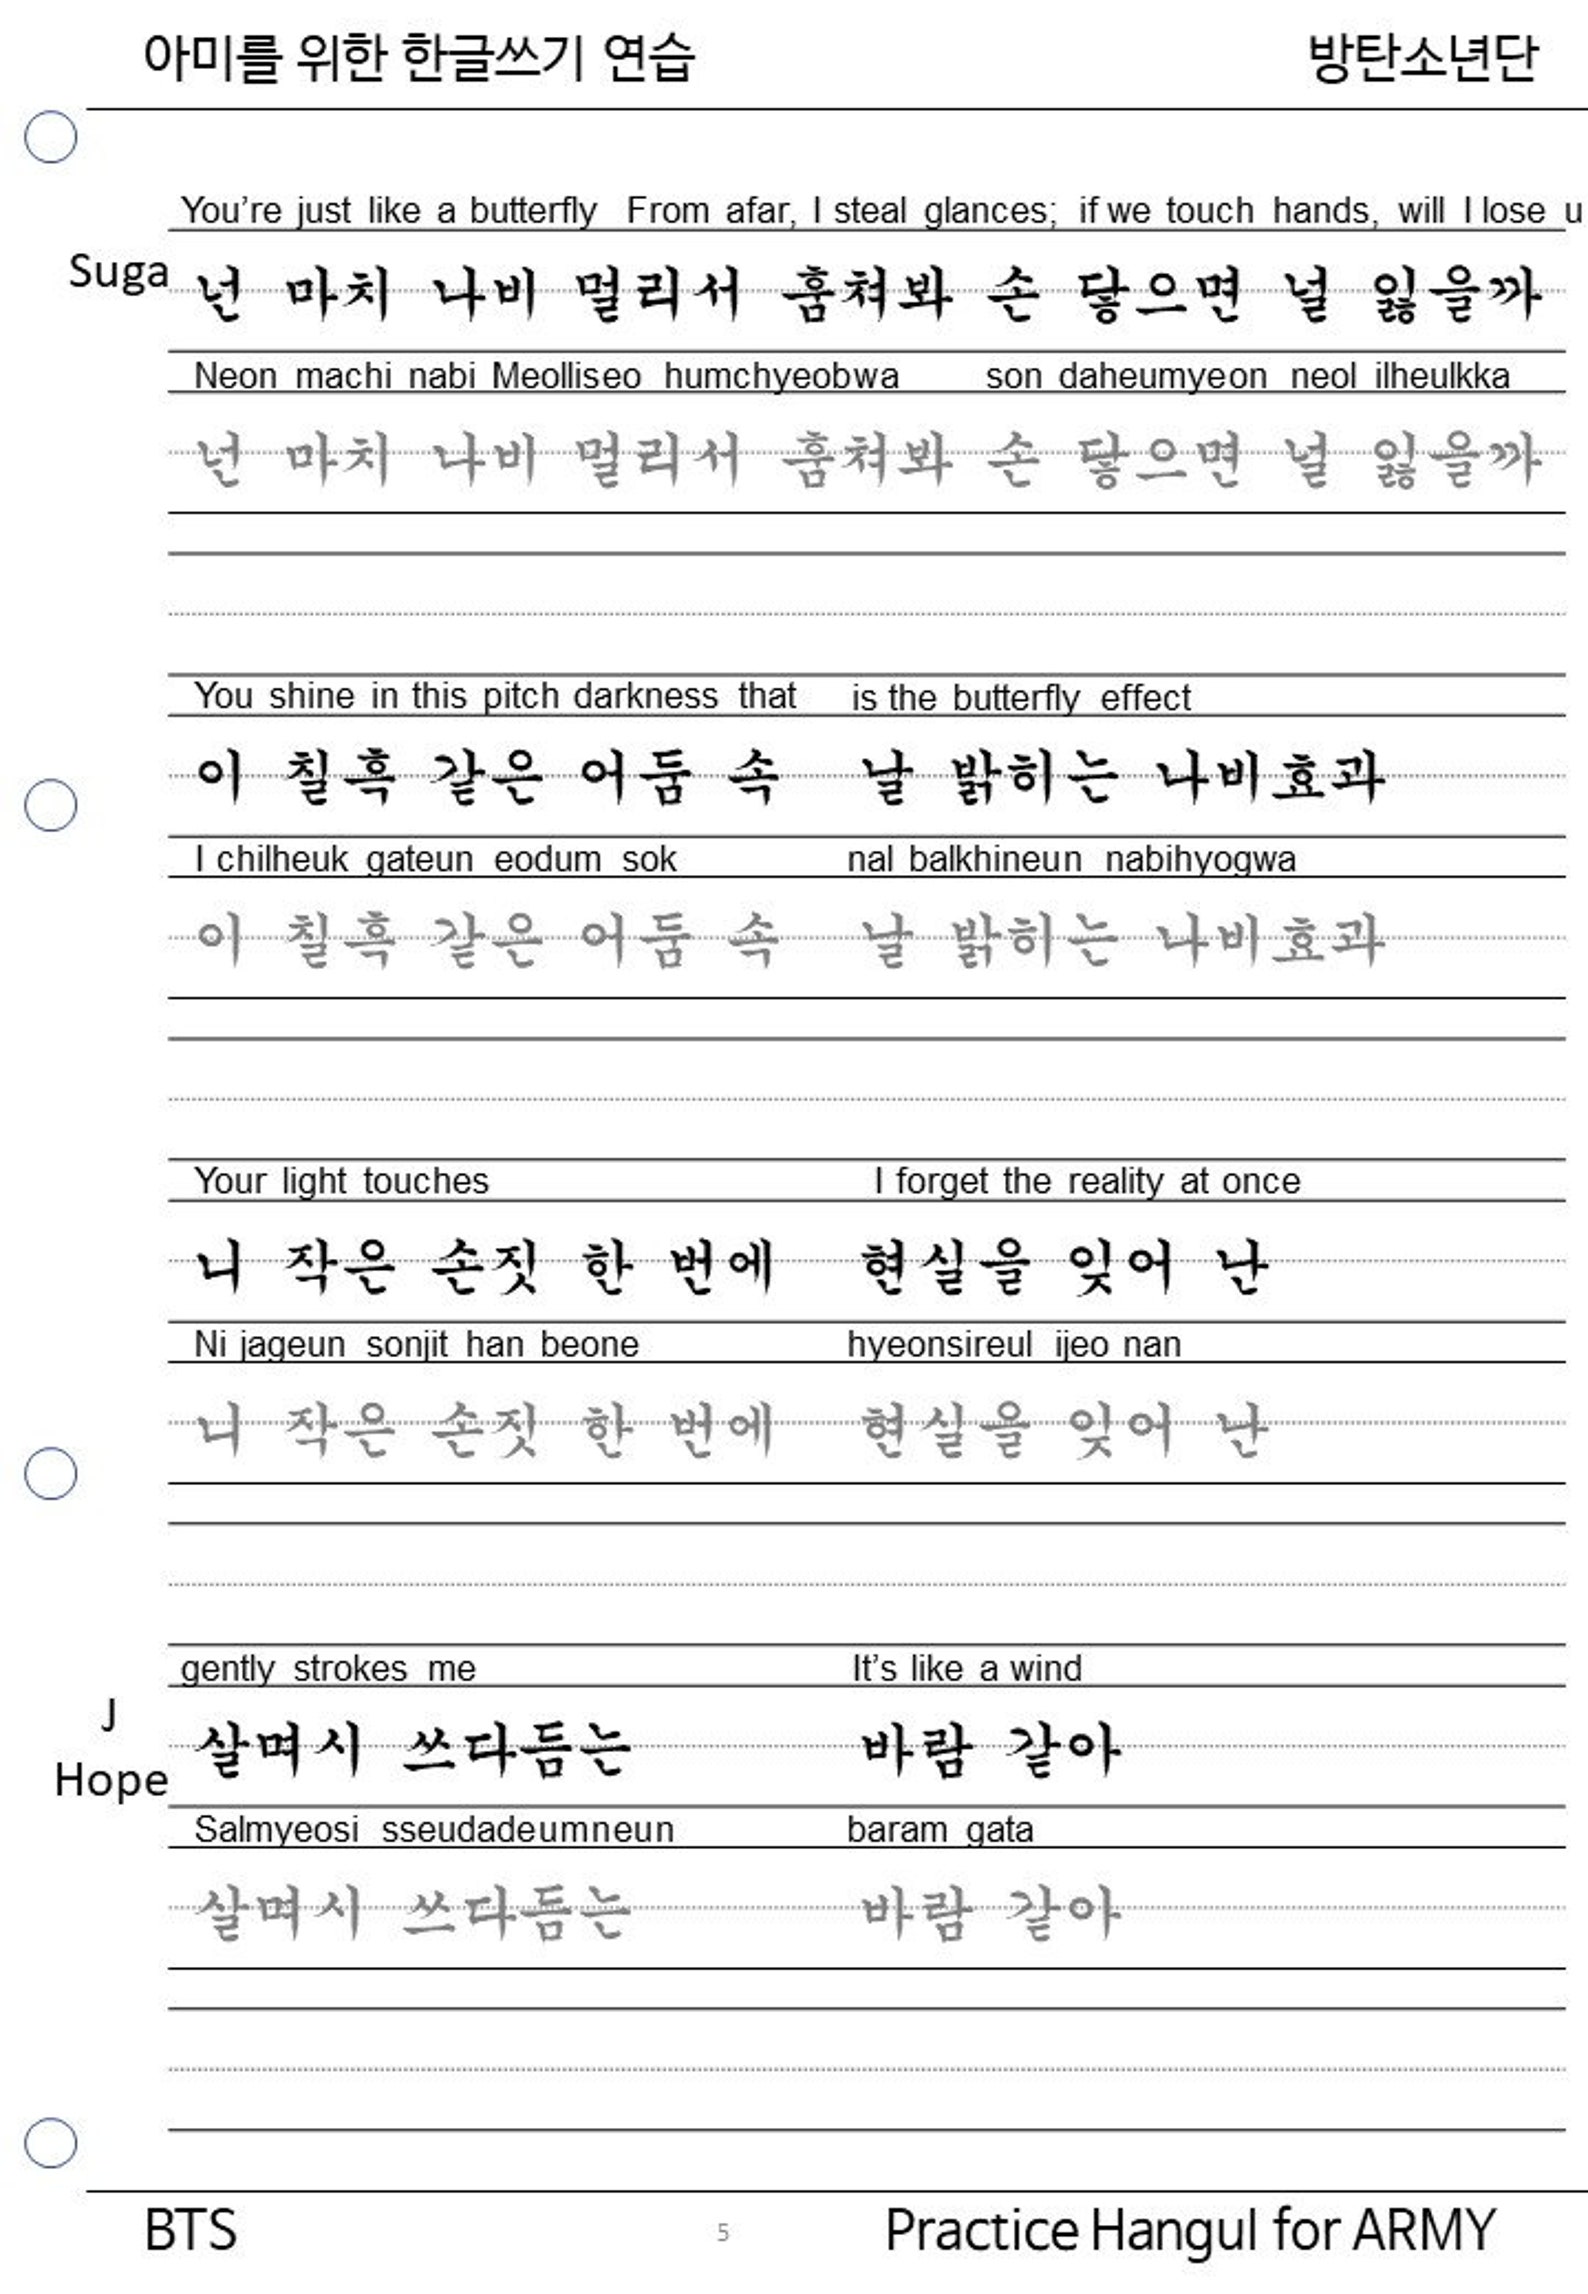 아미를 위한 한글쓰기 연습 방탄소년단
You're just like a butterfly From afar, I steal glances; if we touch hands, will I lose u
Suga 넌 마치 나비 멀리서 훔쳐봐 손 닿으면 널 잃을까
Neon machi nabi Meolliseo humchyeobwa son daheumyeon neol ilheulkka
넌 마치 나비 멀리서 훔쳐봐 손 닿으면 널 잃을까
You shine in this pitch darkness that is the butterfly effect
이 칠흑 같은 어둠 속 날 밝히는 나비효과
I chilheuk gateun eodum sok nal balkhineun nabihyogwa
이 칠흑 같은 어둠 속 날 밝히는 나비효과
Your light touches I forget the reality at once
니 작은 손짓 한 번에 현실을 잊어 난
Ni jageun sonjit han beone hyeonsireul ijeo nan
니 작은 손짓 한 번에 현실을 잊어 난
gently strokes me It's like a wind
J
Hope
살며시 쓰다듬는 바람 같아
Salmyeosi sseudadeumneun baram gata
살며시 쓰다듬는 바람 같아
BTS 5 Practice Hangul for ARMY